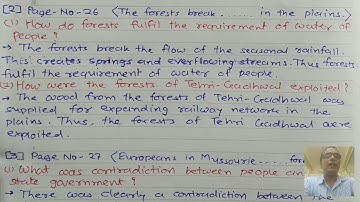 [2] Page-No-26 <The forests break ....... in the plains.>
(1) How do forests fulfil the requirement of water of
people ?
→ The forests break the flow of the seasonal rainfall.
This creates springs and everflowing streams. Thus forests
fulfil the requirement of water of people.
(2) How were the forests of Tehri-Gadhwal exploited ?
→ The wood from the forests of Tehri-Gadhwal was
supplied for expanding railway network in the
plains. Thus, the forests of Tehri Gadhwal were
exploited.
[3] Page No-27 <Europeans in Mussourie .... for
(1) What was contradiction between people an
state government ?
→ There was clearly a contradiction between the